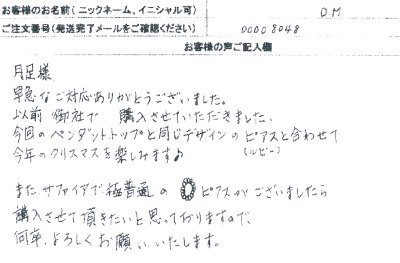 お客様のお名前(ニックネーム、イニシャル可) D.M
ご注文番号(発送完了メールをご確認ください) 00008048
お客様の声ご記入欄
月足様
早急なご対応ありがとうございました。
以前 御社で 購入させていただきました
今回のペンダントトップと同じデザインのピアスと合わせて
(ルビー)
今年のクリスマスを楽しみます♪
また、サファイアで極普通の ピアスがございましたら
購入させて頂きたいと思っておりますので、
何卒、よろしくお願いいたします。